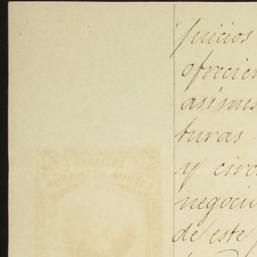 juicios
ofrecien
asimis
turas
y circ
negocio
de este